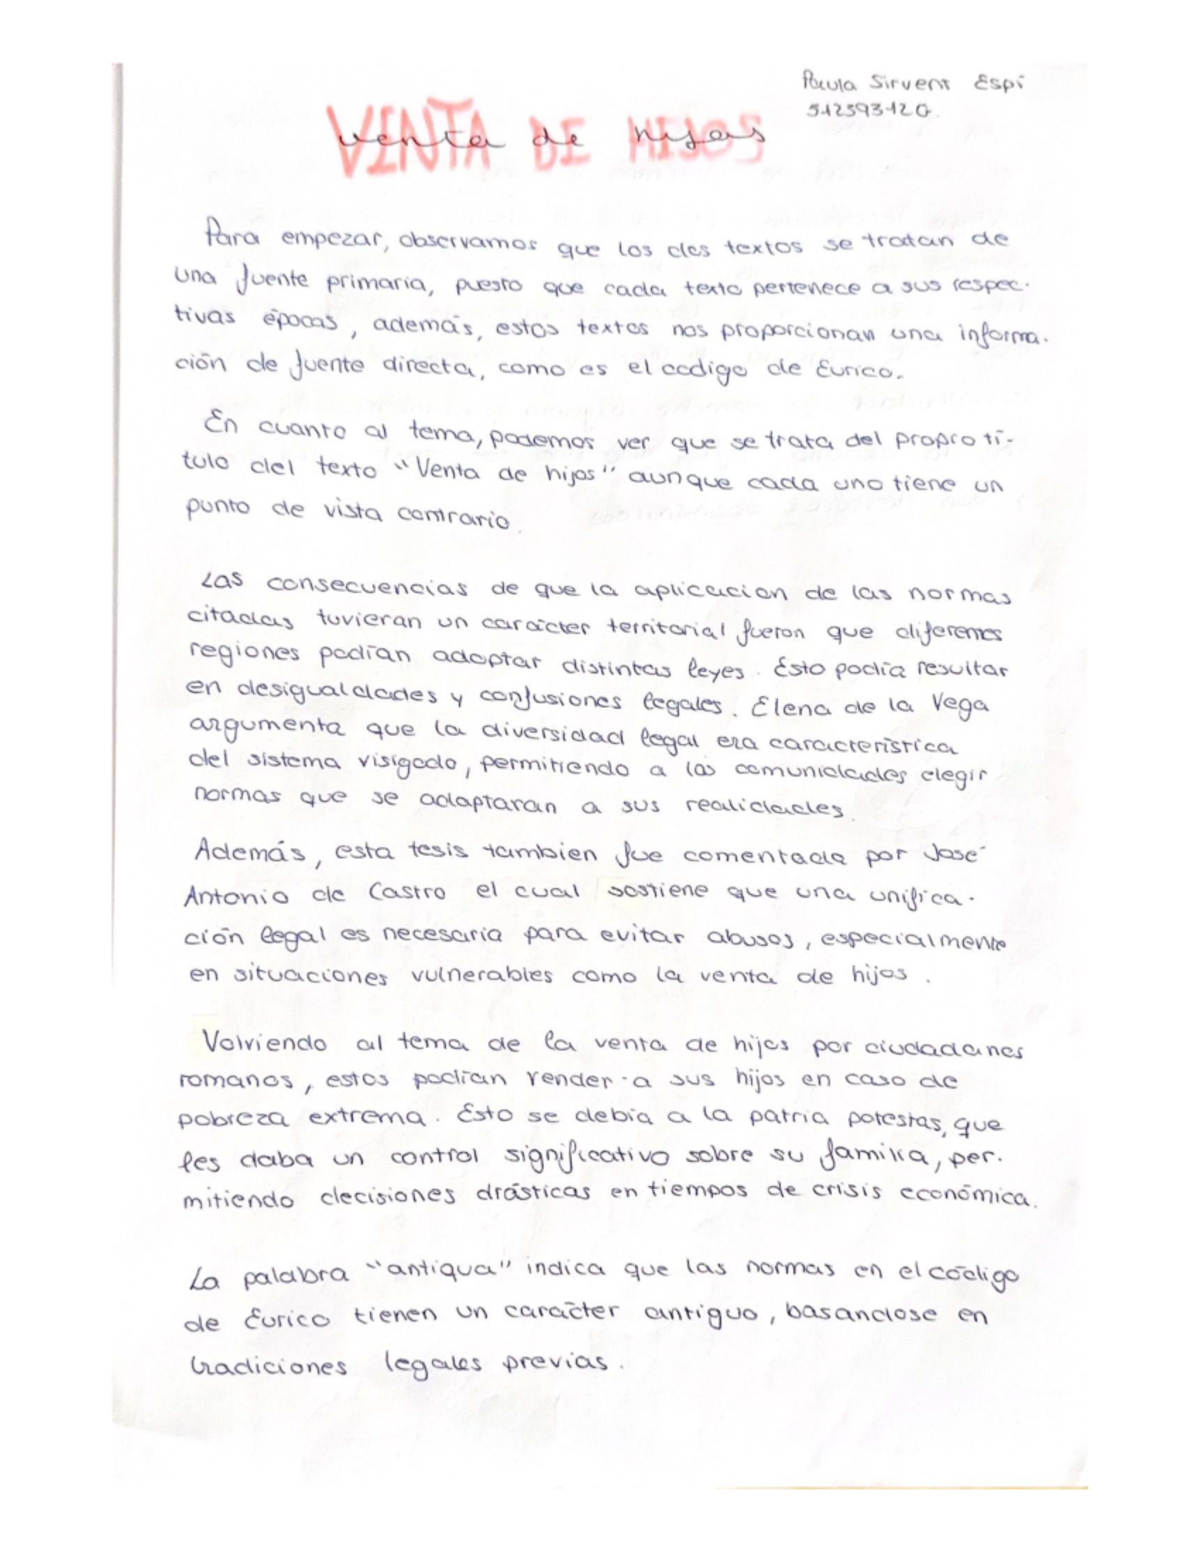 Paula Sirvent Espí
51259312G.
VENTA DE HIJOS
venta de hijos
Para empezar, observamos que los dos textos se tratan de
una fuente primaria, puesto que cada texto pertenece a sus respec-
tivas épocas, además, estos textos nos proporcionan una informa-
ción de fuente directa, como es el codigo de Eurico.
En cuanto al tema, podemos ver que se trata del propro tí-
tulo del texto "Venta de hijos" aunque cada uno tiene un
punto de vista contrario.
Las consecuencias de que la aplicacion de las normas
citadas tuvieran un carácter territorial fueron que diferentes
regiones podían adoptar distintas leyes. Esto podía resultar
en desigualdades y confusiones legales. Elena de la Vega
argumenta que la diversidad legal era característica
del sistema visigodo, permitiendo a las comunidades elegir
normas que se adaptaran a sus realidades.
Además, esta tesis tambien fue comentada por José
Antonio de Castro el cual sostiene que una unifica-
ción legal es necesaria para evitar abusos, especialmente
en situaciones vulnerables como la venta de hijos.
Volviendo al tema de la venta de hijos por ciudadanos
romanos, estos podían vender a sus hijos en caso de
pobreza extrema. Esto se debía a la patria potestas, que
les daba un control significativo sobre su familia, per-
mitiendo decisiones drásticas en tiempos de crisis económica.
La palabra "antiqua" indica que las normas en el código
de Eurico tienen un carácter antiguo, basandose en
tradiciones legales previas.